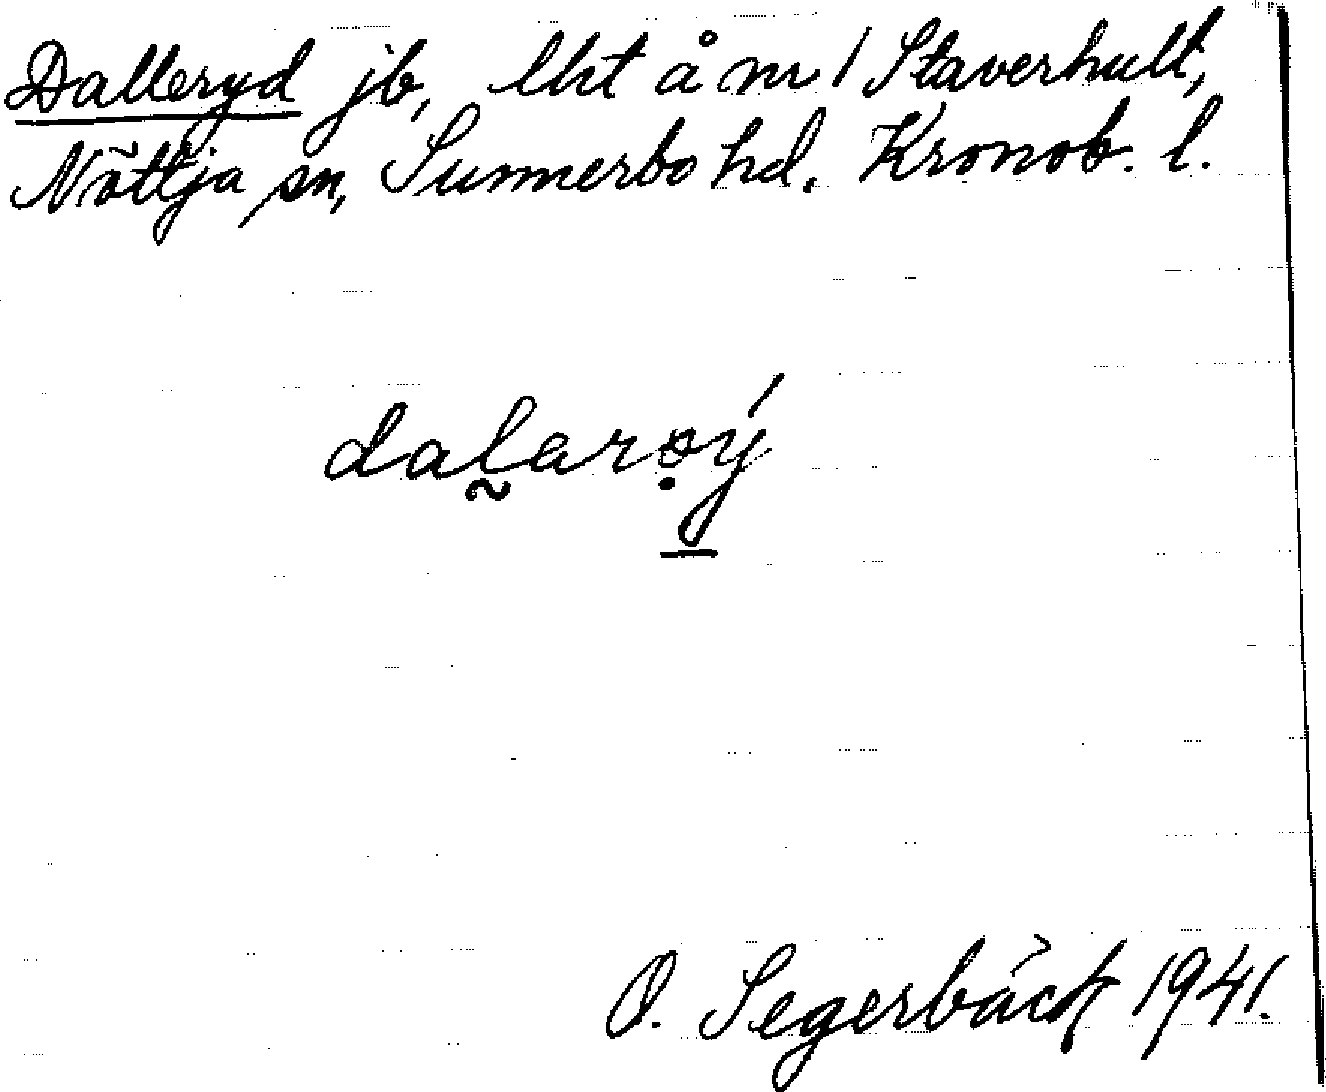 Dalleryd jb, lht å nr 1 Staverhult,
Nöttja sn, Sunnerbo hd. Kronob. l.
O. Segerbäck 1941.